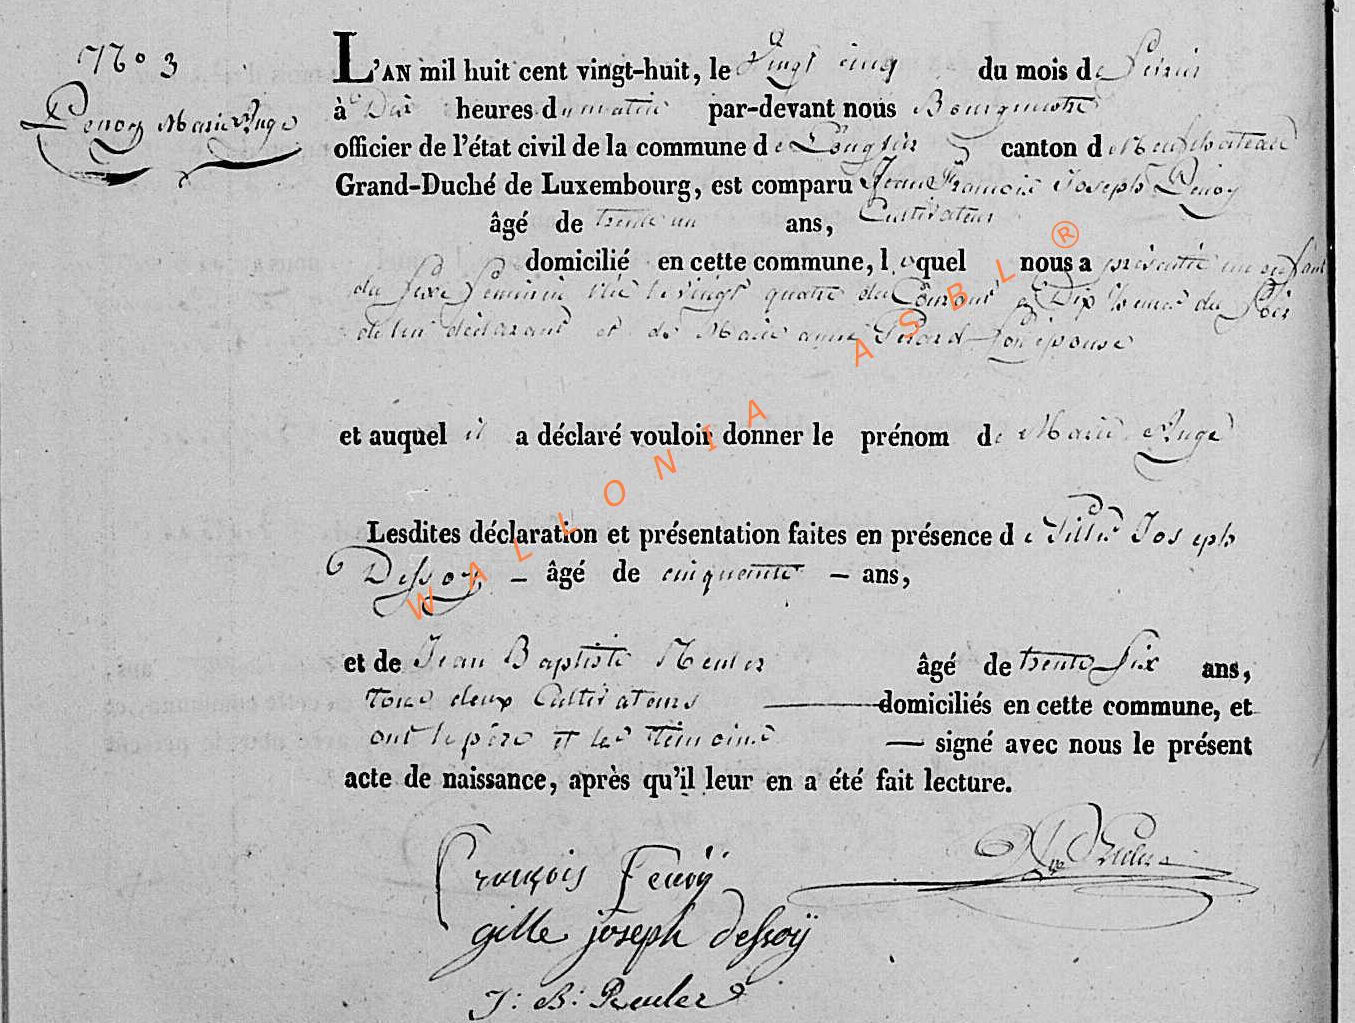 N° 3
Fenoy Marie Ange
L'AN mil huit cent vingt-huit, le Vingt cinq du mois de Fevrier
à Dix heures du matin par-devant nous Bourgmestre
officier de l'état civil de la commune de Longlier canton de Neufchateau
Grand-Duché de Luxembourg, est comparu Jean François Joseph Fenoy
âgé de trente un ans, Cultivateur
domicilié en cette commune, lequel nous a présenté un enfant
du sexe feminin née le vingt quatre du Courant à Dix heures du Soir
de lui déclarant et de Marie anne Son épouse
et auquel il a déclaré vouloir donner le prénom de Marie Ange
Lesdites déclaration et présentation faites en présence de Gille Joseph
Dessoy – âgé de cinquante – ans,
et de Jean Baptiste Reuler âgé de trente Six ans,
tous deux Cultivateurs domiciliés en cette commune, et
ont le père et les témoins — signé avec nous le présent
acte de naissance, après qu'il leur en a été fait lecture.
François Fenoÿ
gille joseph dessoÿ
J: B: Reuler
WALLONIA ASBL ®